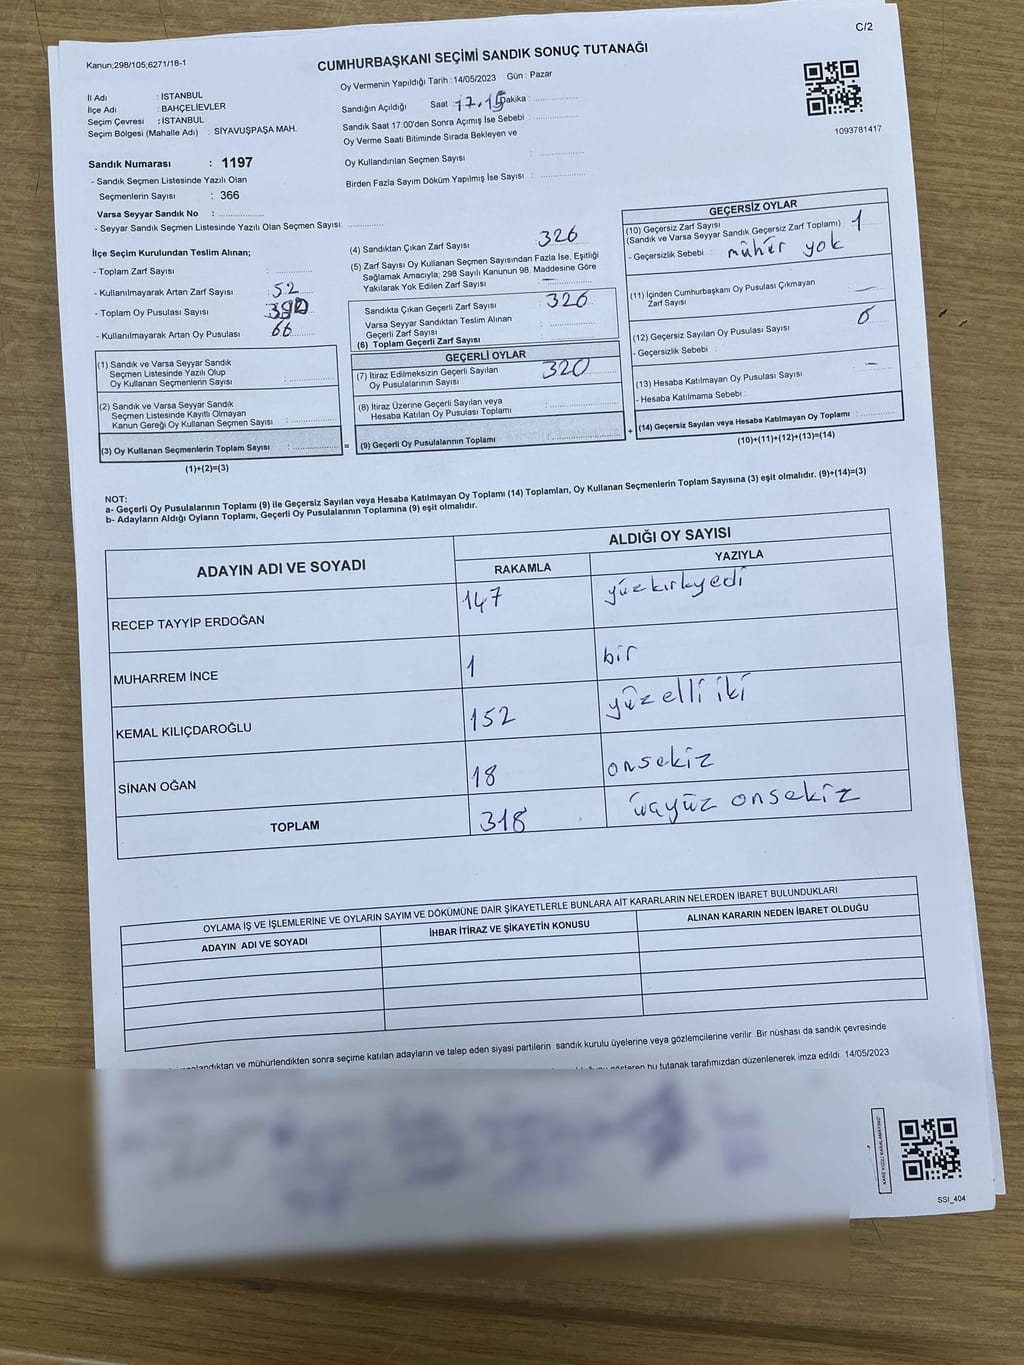 C/2
Kanun;298/105;6271/18-1
CUMHURBAŞKANI SEÇİMİ SANDIK SONUÇ TUTANAĞI
Oy Vermenin Yapıldığı Tarih : 14/05/2023 Gün : Pazar
İl Adı : İSTANBUL
İlçe Adı : BAHÇELİEVLER
Seçim Çevresi : İSTANBUL
Seçim Bölgesi (Mahalle Adı) : SİYAVUŞPAŞA MAH.
Sandığın Açıldığı Saat : 17.15 Dakika :
Sandık Saat 17:00'den Sonra Açımış İse Sebebi :
Oy Verme Saati Bitiminde Sırada Bekleyen ve
Oy Kullandırılan Seçmen Sayısı :
Birden Fazla Sayım Döküm Yapılmış İse Sayısı :
1093781417
Sandık Numarası : 1197
- Sandık Seçmen Listesinde Yazılı Olan
Seçmenlerin Sayısı : 366
Varsa Seyyar Sandık No :
- Seyyar Sandık Seçmen Listesinde Yazılı Olan Seçmen Sayısı:
İlçe Seçim Kurulundan Teslim Alınan;
- Toplam Zarf Sayısı :
- Kullanılmayarak Artan Zarf Sayısı : 52
- Toplam Oy Pusulası Sayısı :
- Kullanılmayarak Artan Oy Pusulası : 66
(1) Sandık ve Varsa Seyyar Sandık
Seçmen Listesinde Yazılı Olup
Oy Kullanan Seçmenlerin Sayısı :
(2) Sandık ve Varsa Seyyar Sandık
Seçmen Listesinde Kayıtlı Olmayan
Kanun Gereği Oy Kullanan Seçmen Sayısı :
(3) Oy Kullanan Seçmenlerin Toplam Sayısı :
(1)+(2)=(3)
(4) Sandıktan Çıkan Zarf Sayısı 326
(5) Zarf Sayısı Oy Kullanan Seçmen Sayısından Fazla İse, Eşitliği
Sağlamak Amacıyla; 298 Sayılı Kanunun 98. Maddesine Göre
Yakılarak Yok Edilen Zarf Sayısı : —
Sandıkta Çıkan Geçerli Zarf Sayısı : 326
Varsa Seyyar Sandıktan Teslim Alınan
Geçerli Zarf Sayısı :
(6) Toplam Geçerli Zarf Sayısı
GEÇERLİ OYLAR
(7) İtiraz Edilmeksizin Geçerli Sayılan
Oy Pusulalarının Sayısı : 320
(8) İtiraz Üzerine Geçerli Sayılan veya
Hesaba Katılan Oy Pusulası Toplamı :
= (9) Geçerli Oy Pusulalarının Toplamı :
GEÇERSİZ OYLAR
(10) Geçersiz Zarf Sayısı
(Sandık ve Varsa Seyyar Sandık Geçersiz Zarf Toplamı) : 1
- Geçersizlik Sebebi : mühür yok
(11) İçinden Cumhurbaşkanı Oy Pusulası Çıkmayan
Zarf Sayısı : —
(12) Geçersiz Sayılan Oy Pusulası Sayısı :
- Geçersizlik Sebebi :
(13) Hesaba Katılmayan Oy Pusulası Sayısı : —
- Hesaba Katılmama Sebebi :
+ (14) Geçersiz Sayılan veya Hesaba Katılmayan Oy Toplamı :
(10)+(11)+(12)+(13)=(14)
NOT:
a- Geçerli Oy Pusulalarının Toplamı (9) ile Geçersiz Sayılan veya Hesaba Katılmayan Oy Toplamı (14) Toplamları, Oy Kullanan Seçmenlerin Toplam Sayısına (3) eşit olmalıdır. (9)+(14)=(3)
b- Adayların Aldığı Oyların Toplamı, Geçerli Oy Pusulalarının Toplamına (9) eşit olmalıdır.
ADAYIN ADI VE SOYADI ALDIĞI OY SAYISI
RAKAMLA YAZIYLA
RECEP TAYYİP ERDOĞAN 147 yüzkırkyedi
MUHARREM İNCE 1 bir
KEMAL KILIÇDAROĞLU 152 yüz elli iki
SİNAN OĞAN 18 onsekiz
TOPLAM 318 üçyüz onsekiz
OYLAMA İŞ VE İŞLEMLERİNE VE OYLARIN SAYIM VE DÖKÜMÜNE DAİR ŞİKAYETLERLE BUNLARA AİT KARARLARIN NELERDEN İBARET BULUNDUKLARI
ADAYIN ADI VE SOYADI İHBAR İTİRAZ VE ŞİKAYETİN KONUSU ALINAN KARARIN NEDEN İBARET OLDUĞU
ve mühürlendikten sonra seçime katılan adayların ve talep eden siyasi partilerin sandık kurulu üyelerine veya gözlemcilerine verilir. Bir nüshası da sandık çevresinde
bu tutanak tarafımızdan düzenlenerek imza edildi. 14/05/2023
SSI_404